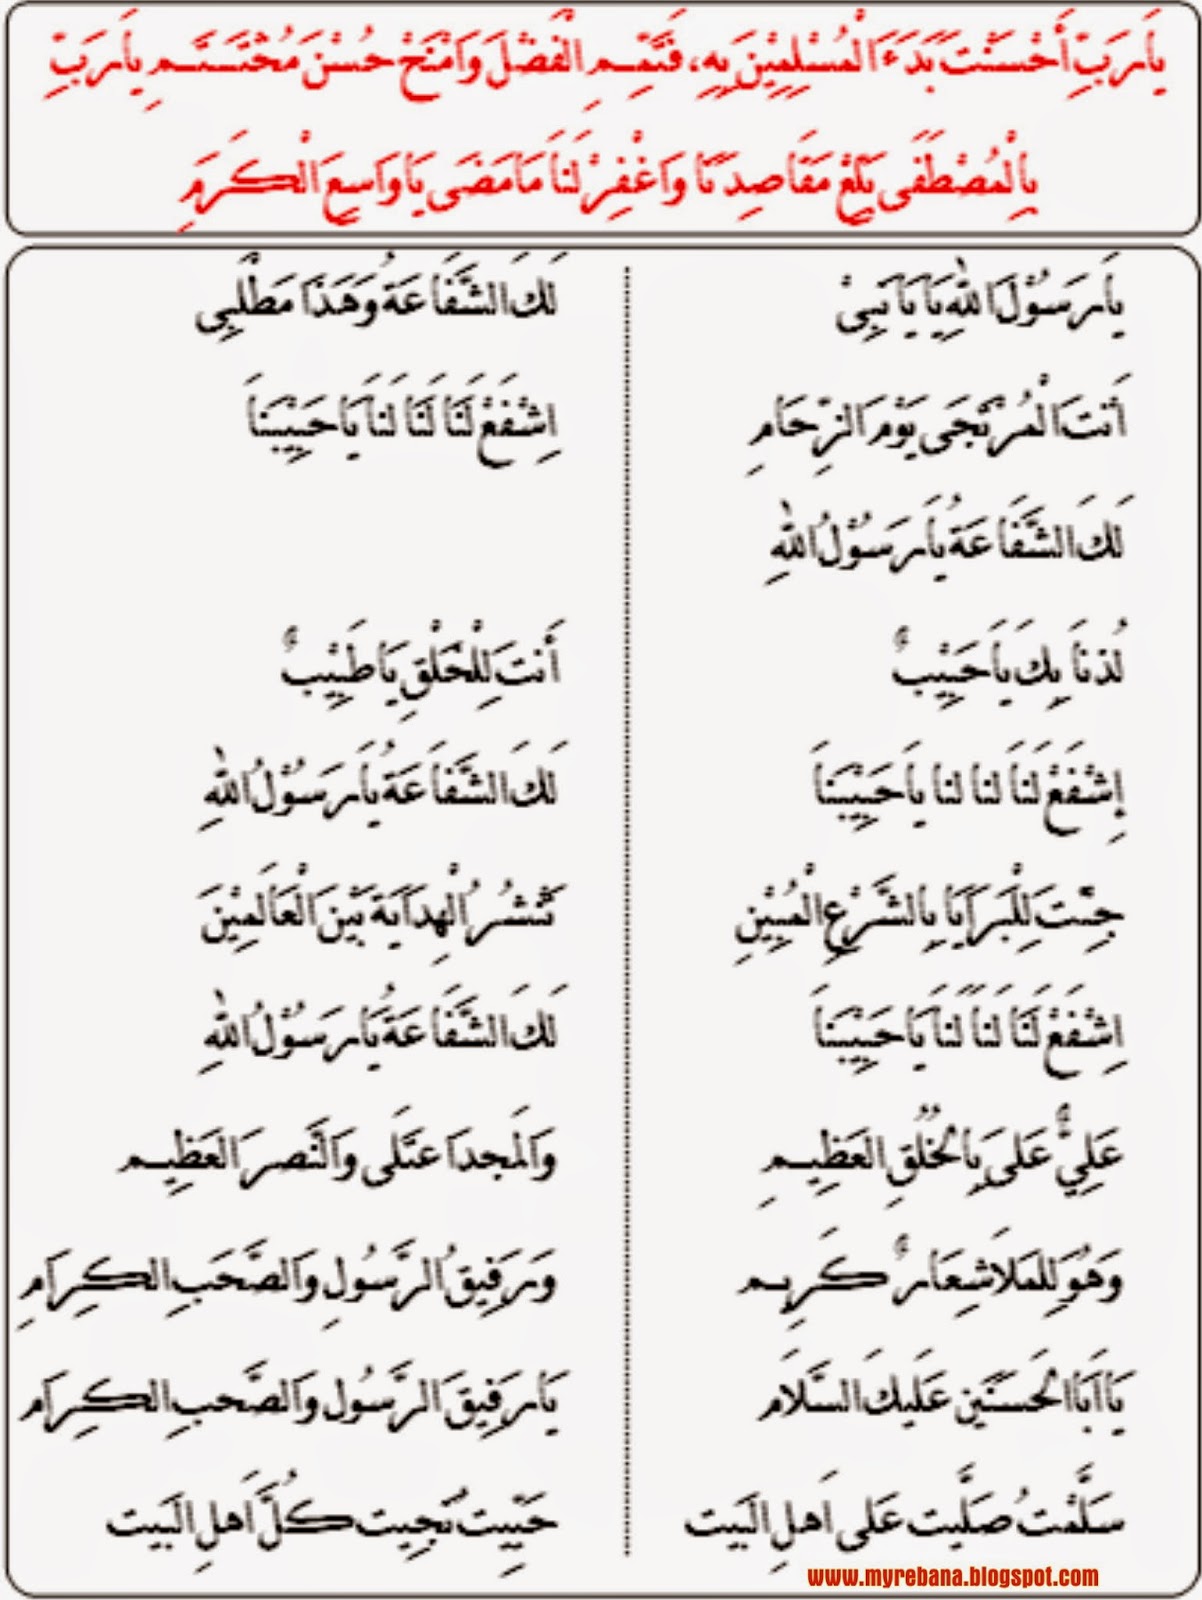 يَارَبِّ أَحْسَنْتَ بَدَءَ الْمُسْلِمِيْنَ بِهِ، فَتَمِّمِ الْفَضْلَ وَامْنَحْ حُسْنَ مُخْتَتَمِ يَارَبِّ
بِالْمُصْطَفَى بَلِّغْ مَقَاصِدَنَا وَاغْفِرْ لَنَا مَامَضَى يَا وَاسِعَ الْكَرَمِ
يَارَسُوْلَ اللهِ يَا يَا نَبِيْ لَكَ الشَّفَاعَةُ وَهَذَا مَطْلَبِى
اَنْتَ الْمُرْتَجَى يَوْمَ الزِّحَامِ اِشْفَعْ لَنَا لَنَا لَنَا يَا حَبِيْبَنَا
لَكَ الشَّفَاعَةُ يَارَسُوْلُ اللهِ
لُذْنَا بِكَ يَا حَبِيْبٌ أَنْتَ لِلْخَلْقِ يَا طَبِيْبٌ
إِشْفَعْ لَنَا لَنَا لَنَا يَا حَبِيْبَنَا لَكَ الشَّفَاعَةُ يَارَسُوْلُ اللهِ
جِئْتَ لِلْبَرَايَا بِالشَّرْعِ الْمُبِيْنِ تَنْشُرُ الْهِدَايَةَ بَيْنَ الْعَالَمِيْنَ
اِشْفَعْ لَنَا لَنَا لَنَا يَا حَبِيْبَنَا لَكَ الشَّفَاعَةُ يَارَسُوْلُ اللهِ
عَلِيٌّ عَلَى بِالْخُلُقِ الْعَظِيْمِ وَالْمَجْدَاعْتَلَى وَالنَّصرَ الْعَظِيْم
وَهُوَ لِلمَلَا شِعَارٌ كَرِيم وَرَفِيقُ الرَّسُولِ وَالصَّحَبِ الكِرَامِ
يَا اَبَا الحَسَنَين عَلَيكَ السَّلَامَ يَا رَفِيقَ الرَّسُولِ وَالصَّحبِ الكِرَامِ
سَلَّمْتُ صَلَّيت عَلَى اَهلِ البَيت حَيَّيت نَجِيت كُلَّ اَهلِ البَيت
www.myrebana.blogspot.com